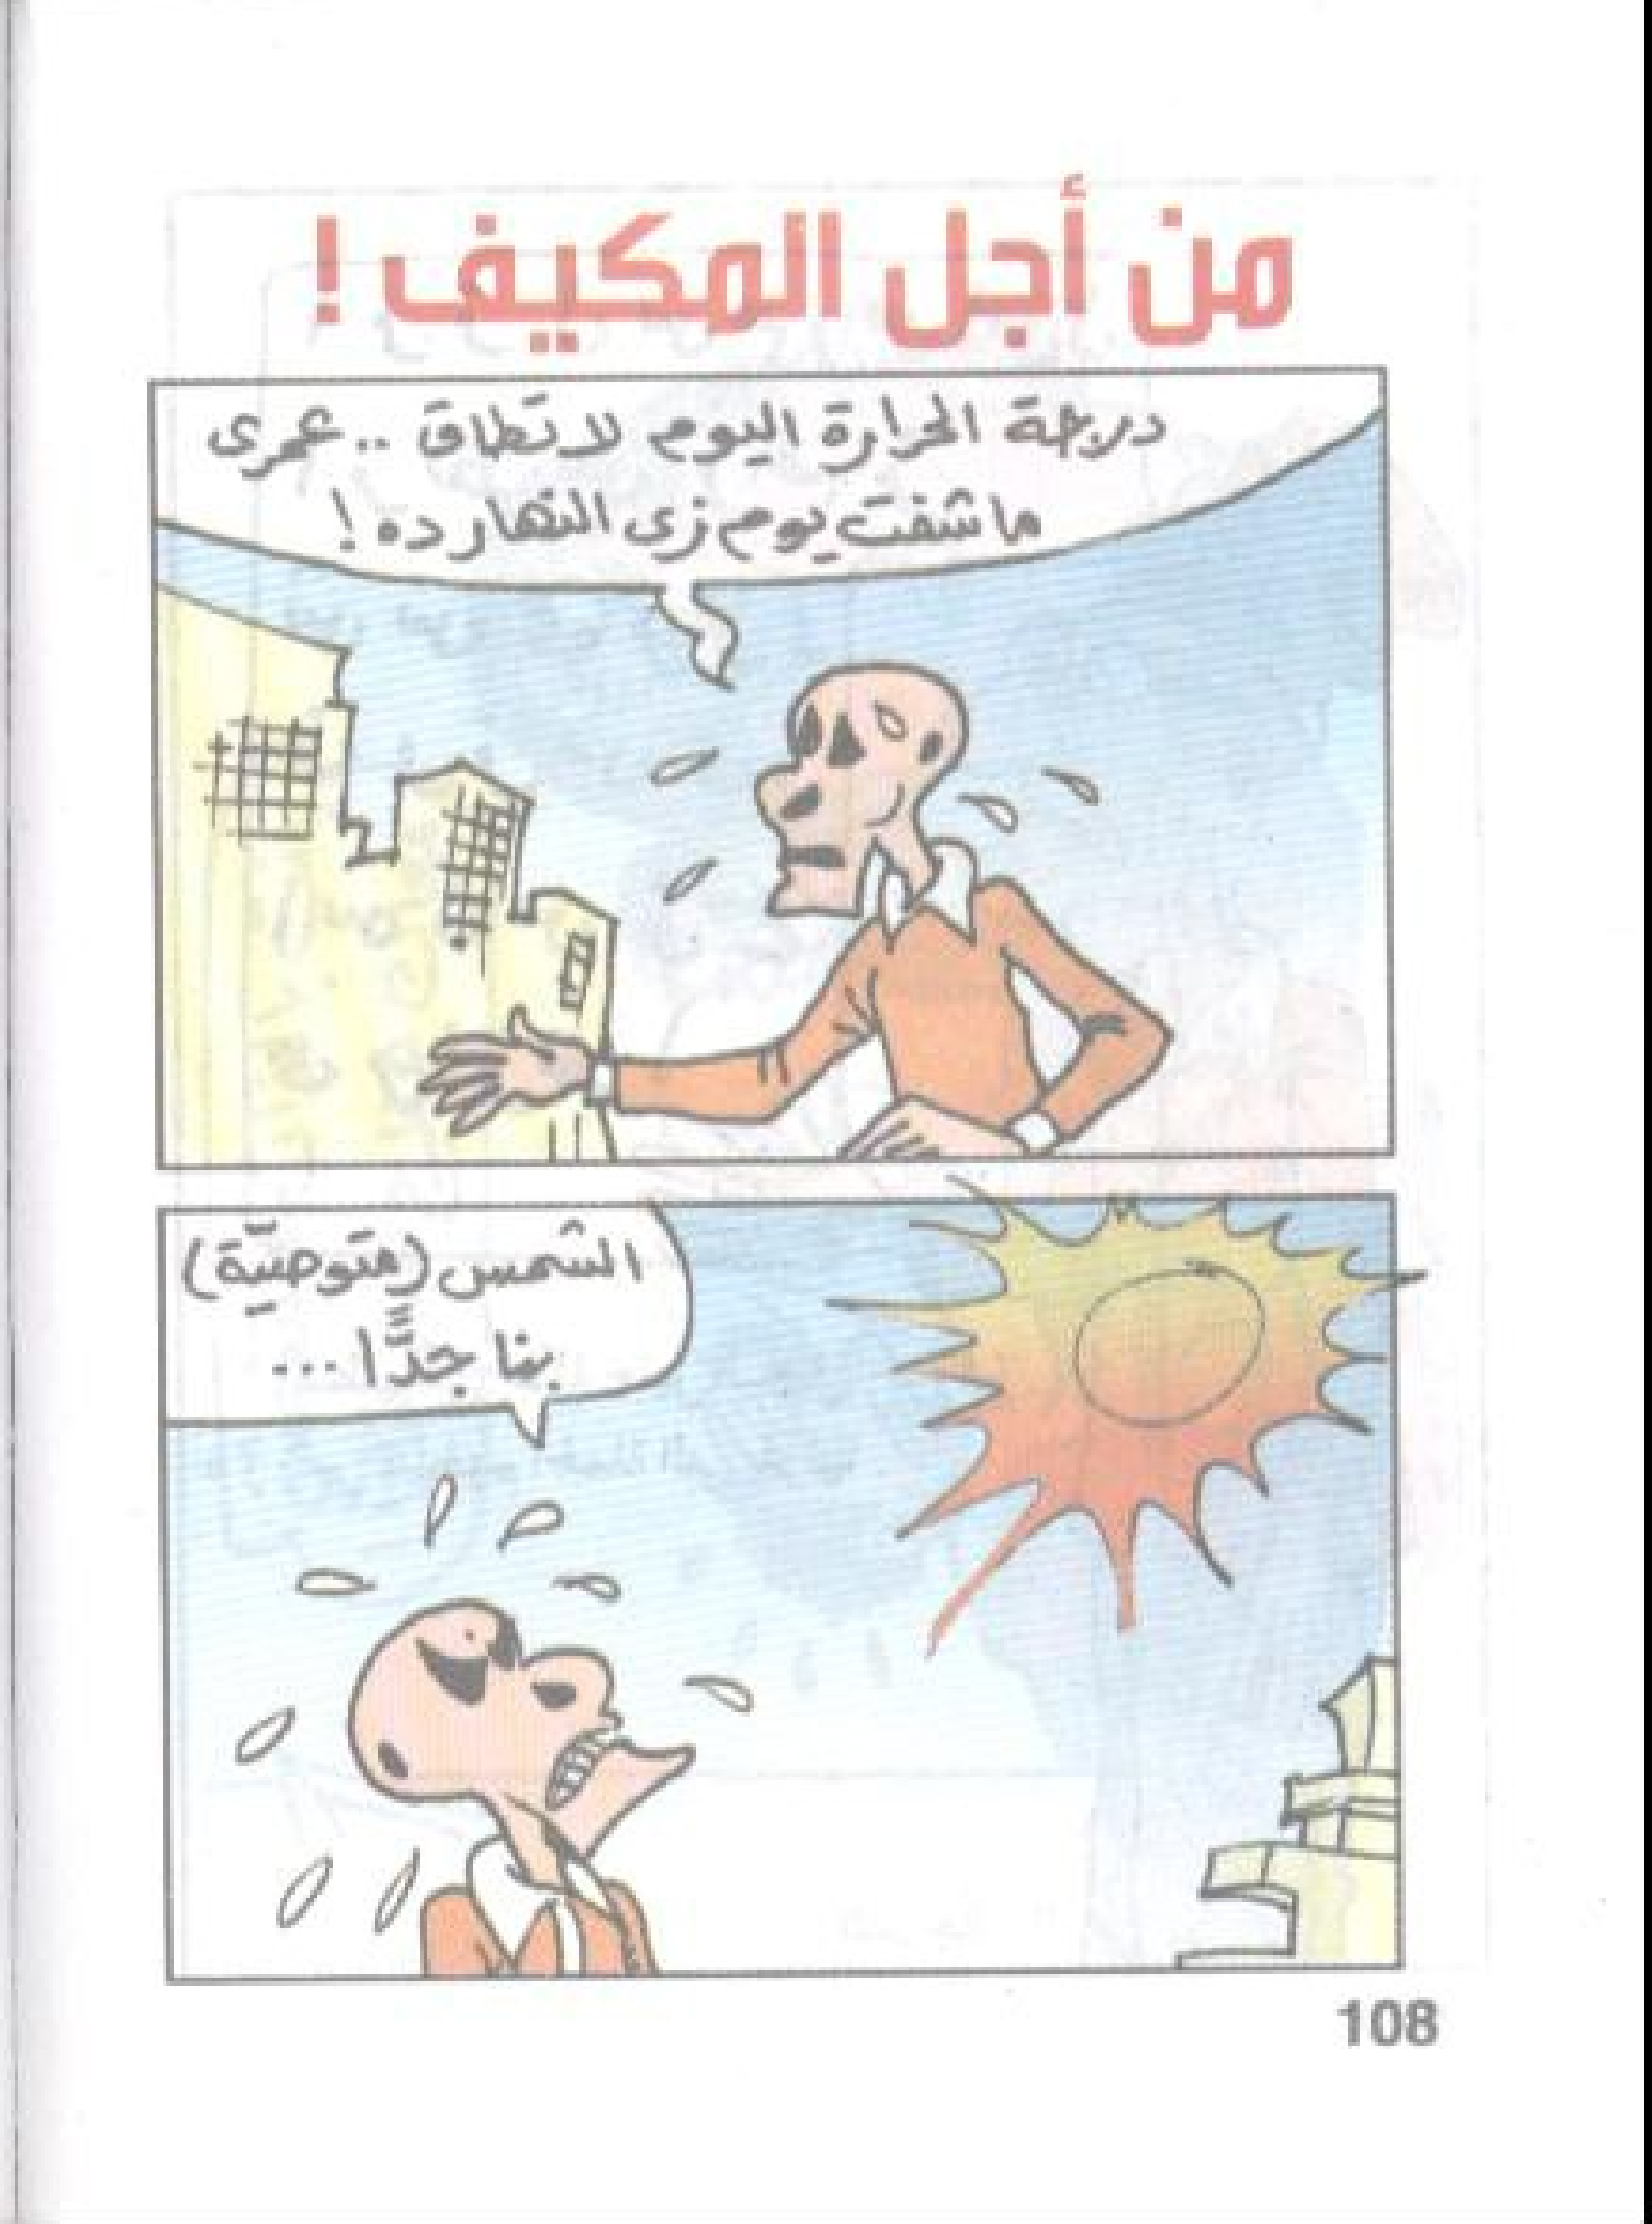 من أجل المكيف !
درجة الحرارة اليوم لا تطاق .. عمرى
ما شفت يوم زى النهارده !
الشمس (متوصيّة)
بنا جدًّا ...
108